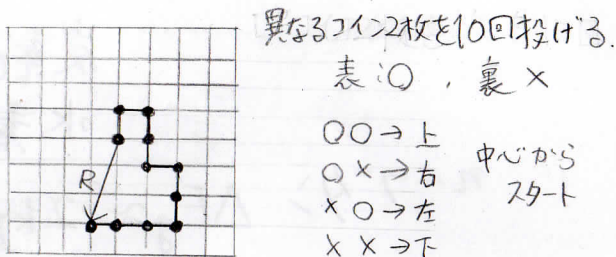 異なるコイン2枚を10回投げる.
表:○ , 裏 ×
○○→上
○×→右
×○→左
××→下
中心から
スタート
R